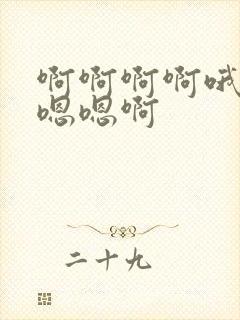 啊啊啊啊哦
嗯嗯啊
二十九